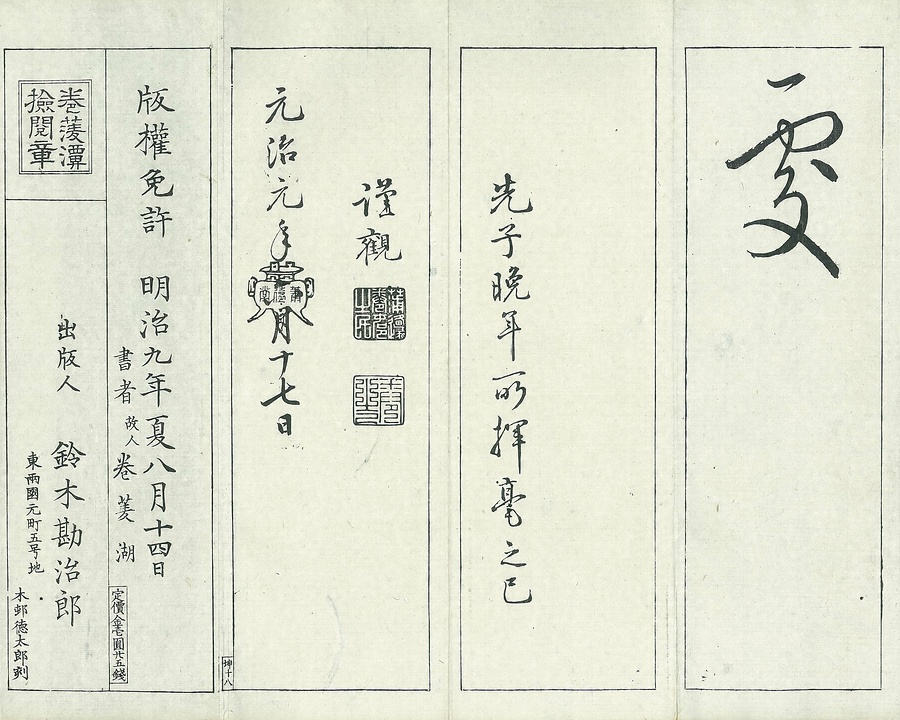 一
先子晩年所揮毫之巳
謹觀
元治元年
月十七日
坤十八
版權免許 明治九年夏八月十四日
書者 故人 卷菱湖
定價金壱圓廿五錢
卷菱潭
撿閲章
出版人 鈴木勘治郎
東兩國元町五号地
木邨徳太郎刻